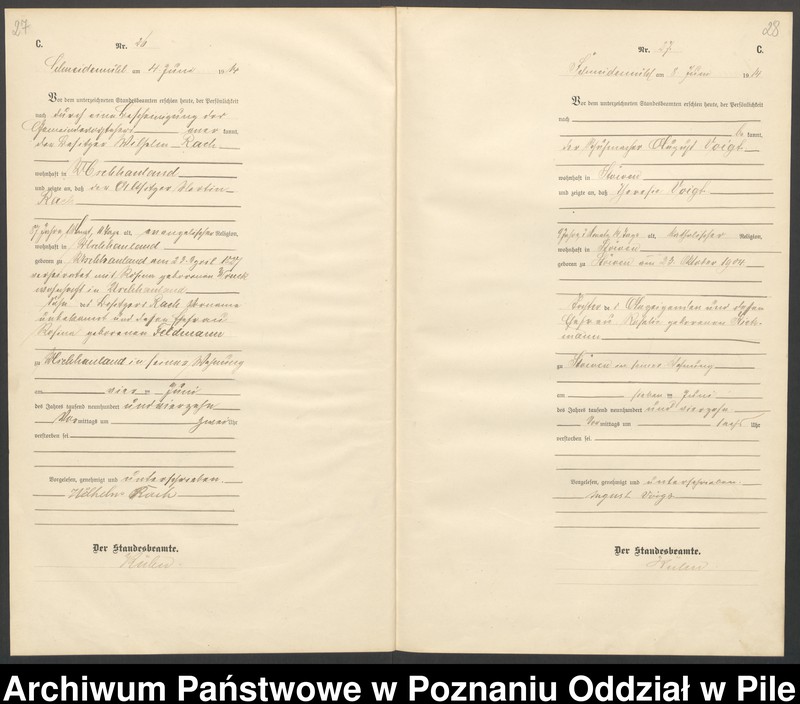 27
C.
Nr. 26
Schneidemühl am 4 Juni 1914
Vor dem unterzeichneten Standesbeamten erschien heute, der Persönlichkeit
nach durch eine Bescheinigung der
kannt,
der Besitzer Wilhelm Rach
wohnhaft in
und zeigte an, daß der Altsitzer Martin
Rach
87 Jahre, alt, evangelischer Religion,
wohnhaft in
geboren zu am 23 April
verheiratet mit Rosina geborenen
wohnhaft in
Sohn des Besitzers Rach Vorname
unbekannt und dessen Ehefrau
Rosina geborenen Feldmann
zu in seiner Wohnung
am vier Juni
des Jahres tausend neunhundert und vierzehn
Vormittags um zwei Uhr
verstorben sei.
Vorgelesen, genehmigt und unterschrieben
Wilhelm Rach
Der Standesbeamte.
28
Nr. 27 C.
Schneidemühl am 8 Juni 1914
Vor dem unterzeichneten Standesbeamten erschien heute, der Persönlichkeit
nach
bekannt,
der August Voigt
wohnhaft in Stöwen
und zeigte an, daß Voigt
9 Jahre, 7 Monate, alt, katholischer Religion,
wohnhaft in Stöwen
geboren zu Stöwen am 23. Oktober 1904
Tochter des und dessen
Ehefrau Rosalie geborenen
zu Stöwen in seiner Wohnung
am sieben Juni
des Jahres tausend neunhundert und vierzehn
Vormittags um Uhr
verstorben sei.
Vorgelesen, genehmigt und unterschrieben
August Voigt
Der Standesbeamte.
Archiwum Państwowe w Poznaniu Oddział w Pile